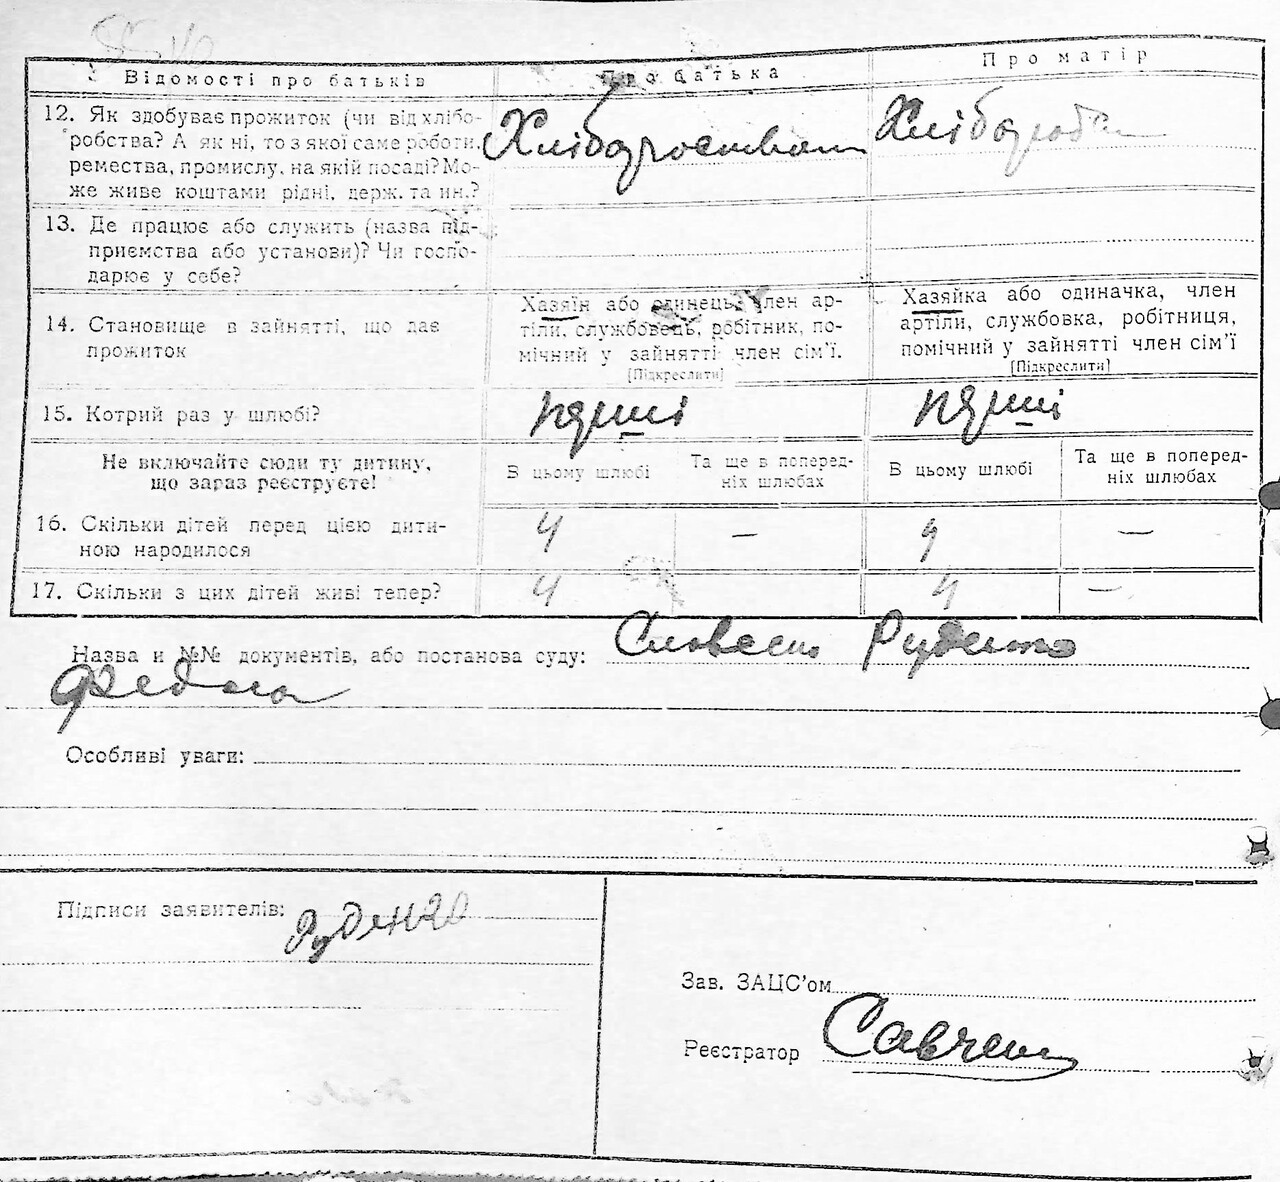 Відомості про батьків
Про батька
Про матір
12. Як здобуває прожиток (чи від хлібо-
робства? А як ні, то з якої саме роботи,
ремества, промислу, на якій посаді? Мо-
же живе коштами рідні, держ. та ин.?
Хліборобством
Хлібороб
13. Де працює або служить (назва під-
приємства або установи)? Чи госпо-
дарює у себе?
14. Становище в зайнятті, що дає
прожиток
Хазяїн або одинець, член ар-
тіли, службовець, робітник, по-
мічний у зайнятті член сім'ї.
[Підкреслити]
Хазяйка або одиначка, член
артіли, службовка, робітниця,
помічний у зайнятті член сім'ї
[Підкреслити]
15. Котрий раз у шлюбі?
перші
перші
Не включайте сюди ту дитину,
що зараз реєструєте!
В цьому шлюбі
Та ще в поперед-
ніх шлюбах
В цьому шлюбі
Та ще в поперед-
ніх шлюбах
16. Скільки дітей перед цією дити-
ною народилося
4 — 4 —
17. Скільки з цих дітей живі тепер?
4 4 —
Назва и №№ документів, або постанова суду: Словесно Руденко
Федора
Особливі уваги:
Підписи заявителів: Руденко
Зав. ЗАЦС'ом
Реєстратор Савчен